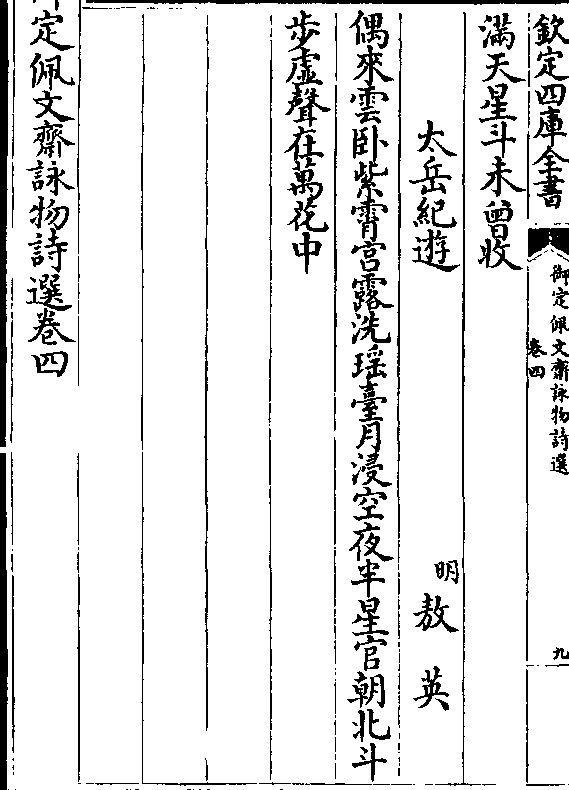 欽定四庫全書
御定佩文齋詠物詩選
卷四
九
滿天星斗未曾收
太岳紀遊
明
敖英
偶來雲卧紫霄宫露洗瑶臺月浸空夜半星官朝北斗
步虚聲在萬花中
御定佩文齋詠物詩選卷四